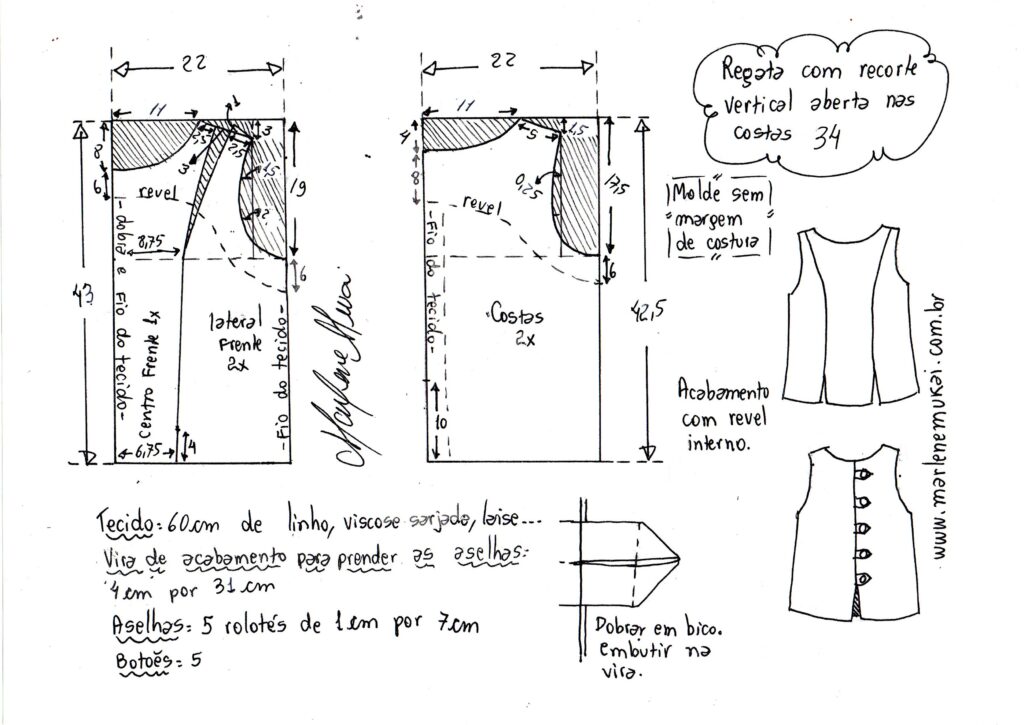 22
11
1
2,5
2,5
3
3
8
6
revel
1,5
2
19
8,75
6
43
-dobra e Fio do tecido-
Centro Frente 1x
lateral
Frente
2x
-Fio do tecido-
6,75
4
Marlene Mukai
22
11
4
5
1,5
8
0,25
17,5
revel
-Fio do tecido-
6
Costas
2x
42,5
10
Regata com recorte
vertical aberta nas
costas 34
Molde sem
margem
de costura
Acabamento
com revel
interno.
www.marlenemukai.com.br
Tecido: 60cm de linho, viscose sarjada, laise...
Vira de acabamento para prender as aselhas:
4cm por 31cm
Aselhas: 5 rolotés de 1cm por 7cm
Botões: 5
Dobrar em bico.
embutir na
vira.